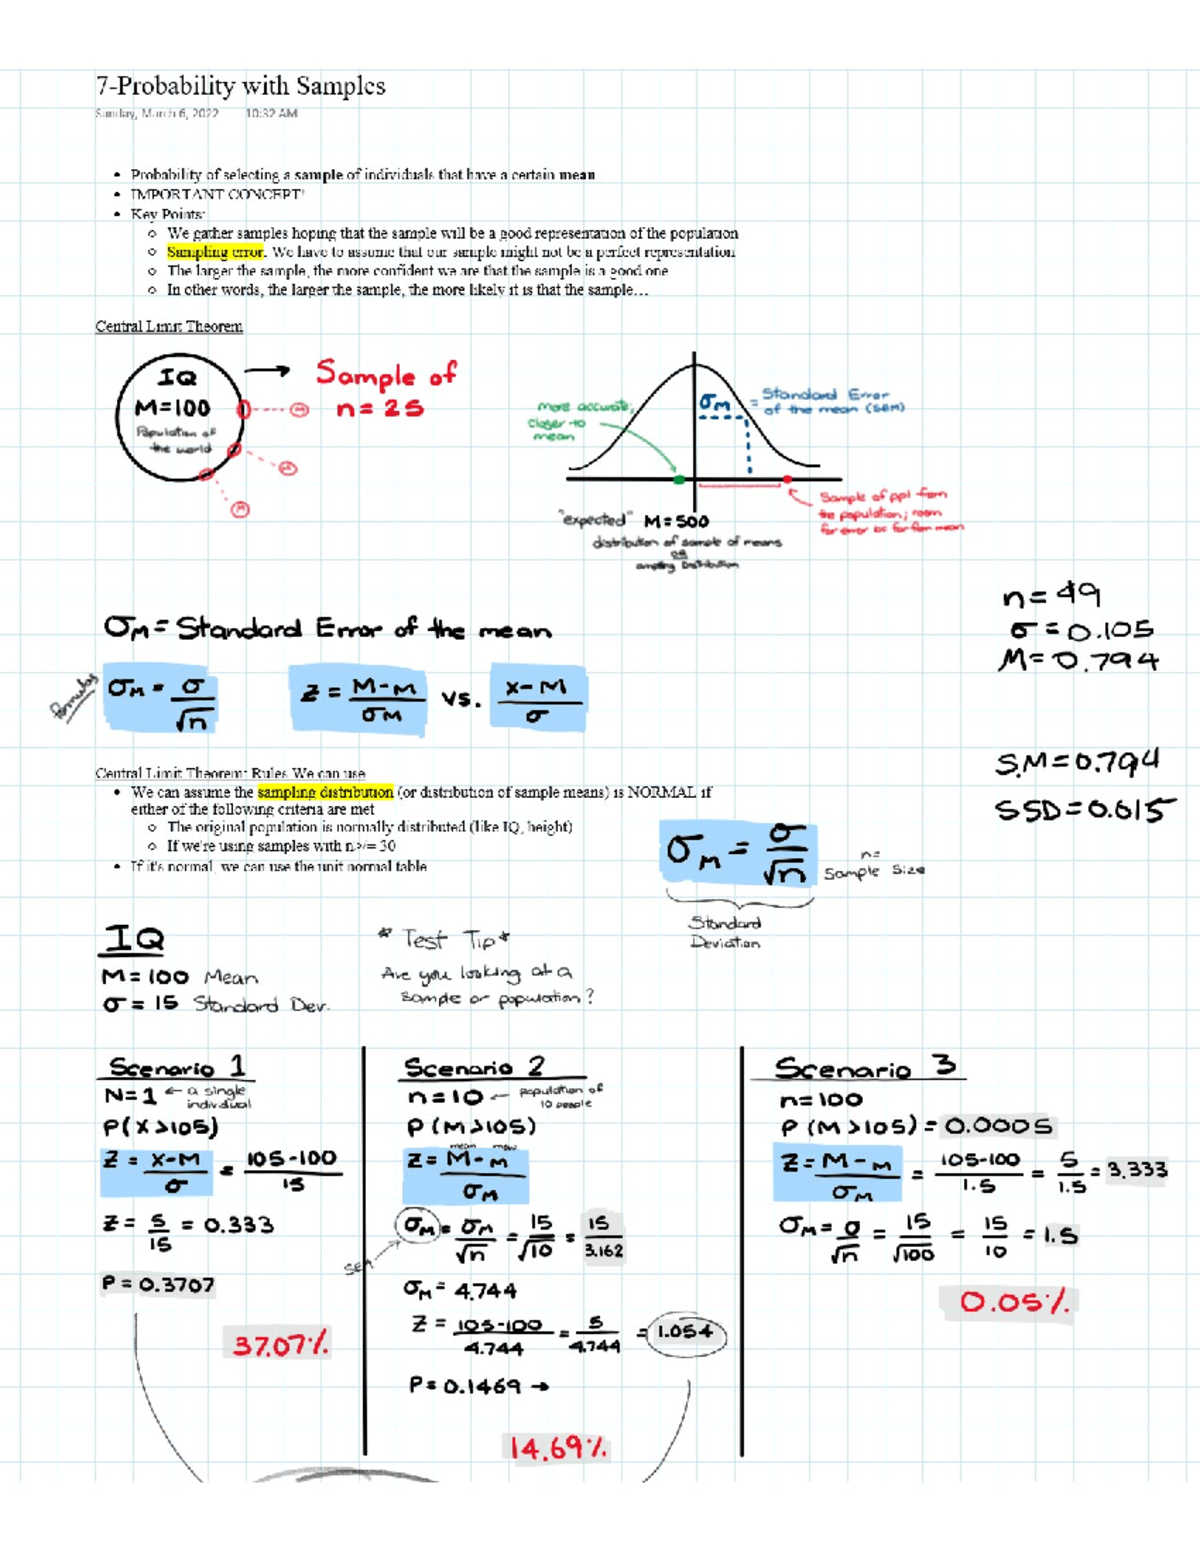 7-Probability with Samples
Sunday, March 6, 2022 10:32 AM
• Probability of selecting a sample of individuals that have a certain mean
• IMPORTANT CONCEPT!
• Key Points:
o We gather samples hoping that the sample will be a good representation of the population
o Sampling error. We have to assume that our sample might not be a perfect representation
o The larger the sample, the more confident we are that the sample is a good one
o In other words, the larger the sample, the more likely it is that the sample…
Central Limit Theorem
IQ
M=100
Population of
the world
Sample of
n = 25
M
M
M
more accurate;
closer to
mean
σM = Standard Error
of the mean (SEM)
"expected" M=500
distribution of sample of means
OR
sampling Distribution
Sample of ppl from
the population; room
for error bc far from mean
n = 49
σ = 0.105
M = 0.794
σM = Standard Error of the mean
Formulas
σM = σ/√n
Z = M-M/σM vs. X-M/σ
S.M=0.794
SSD=0.615
Central Limit Theorem: Rules We can use
• We can assume the sampling distribution (or distribution of sample means) is NORMAL if
either of the following criteria are met
o The original population is normally distributed (like IQ, height)
o If we're using samples with n>/= 30
• If it's normal, we can use the unit normal table
σM = σ/√n
n=
Sample Size
Standard
Deviation
IQ
M=100 Mean
σ = 15 Standard Dev.
* Test Tip *
Are you looking at a
sample or population?
Scenario 1
N=1 ← a single
individual
P(X>105)
Z = X-M/σ = 105-100/15
Z = 5/15 = 0.333
P = 0.3707
37.07%
Scenario 2
n=10 ← population of
10 people
P(M>105)
Z = M-M/σM
σM = σM/√n = 15/√10 = 15/3.162
SEM
σM = 4.744
Z = 105-100/4.744 = 5/4.744 = 1.054
P = 0.1469 →
14.69%
Scenario 3
n=100
P(M>105) = 0.0005
Z = M-M/σM = 105-100/1.5 = 5/1.5 = 3.333
σM = σ/√n = 15/√100 = 15/10 = 1.5
0.05%